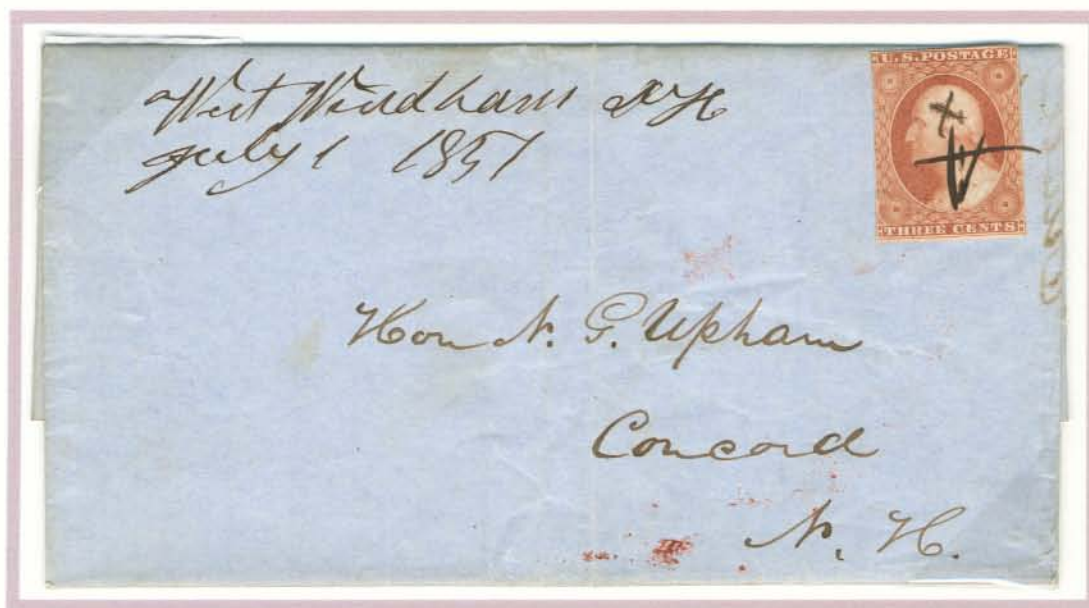 West Windham NH
July 1 1851
U.S. POSTAGE
THREE CENTS
Hon N. G. Upham
Concord
N. H.